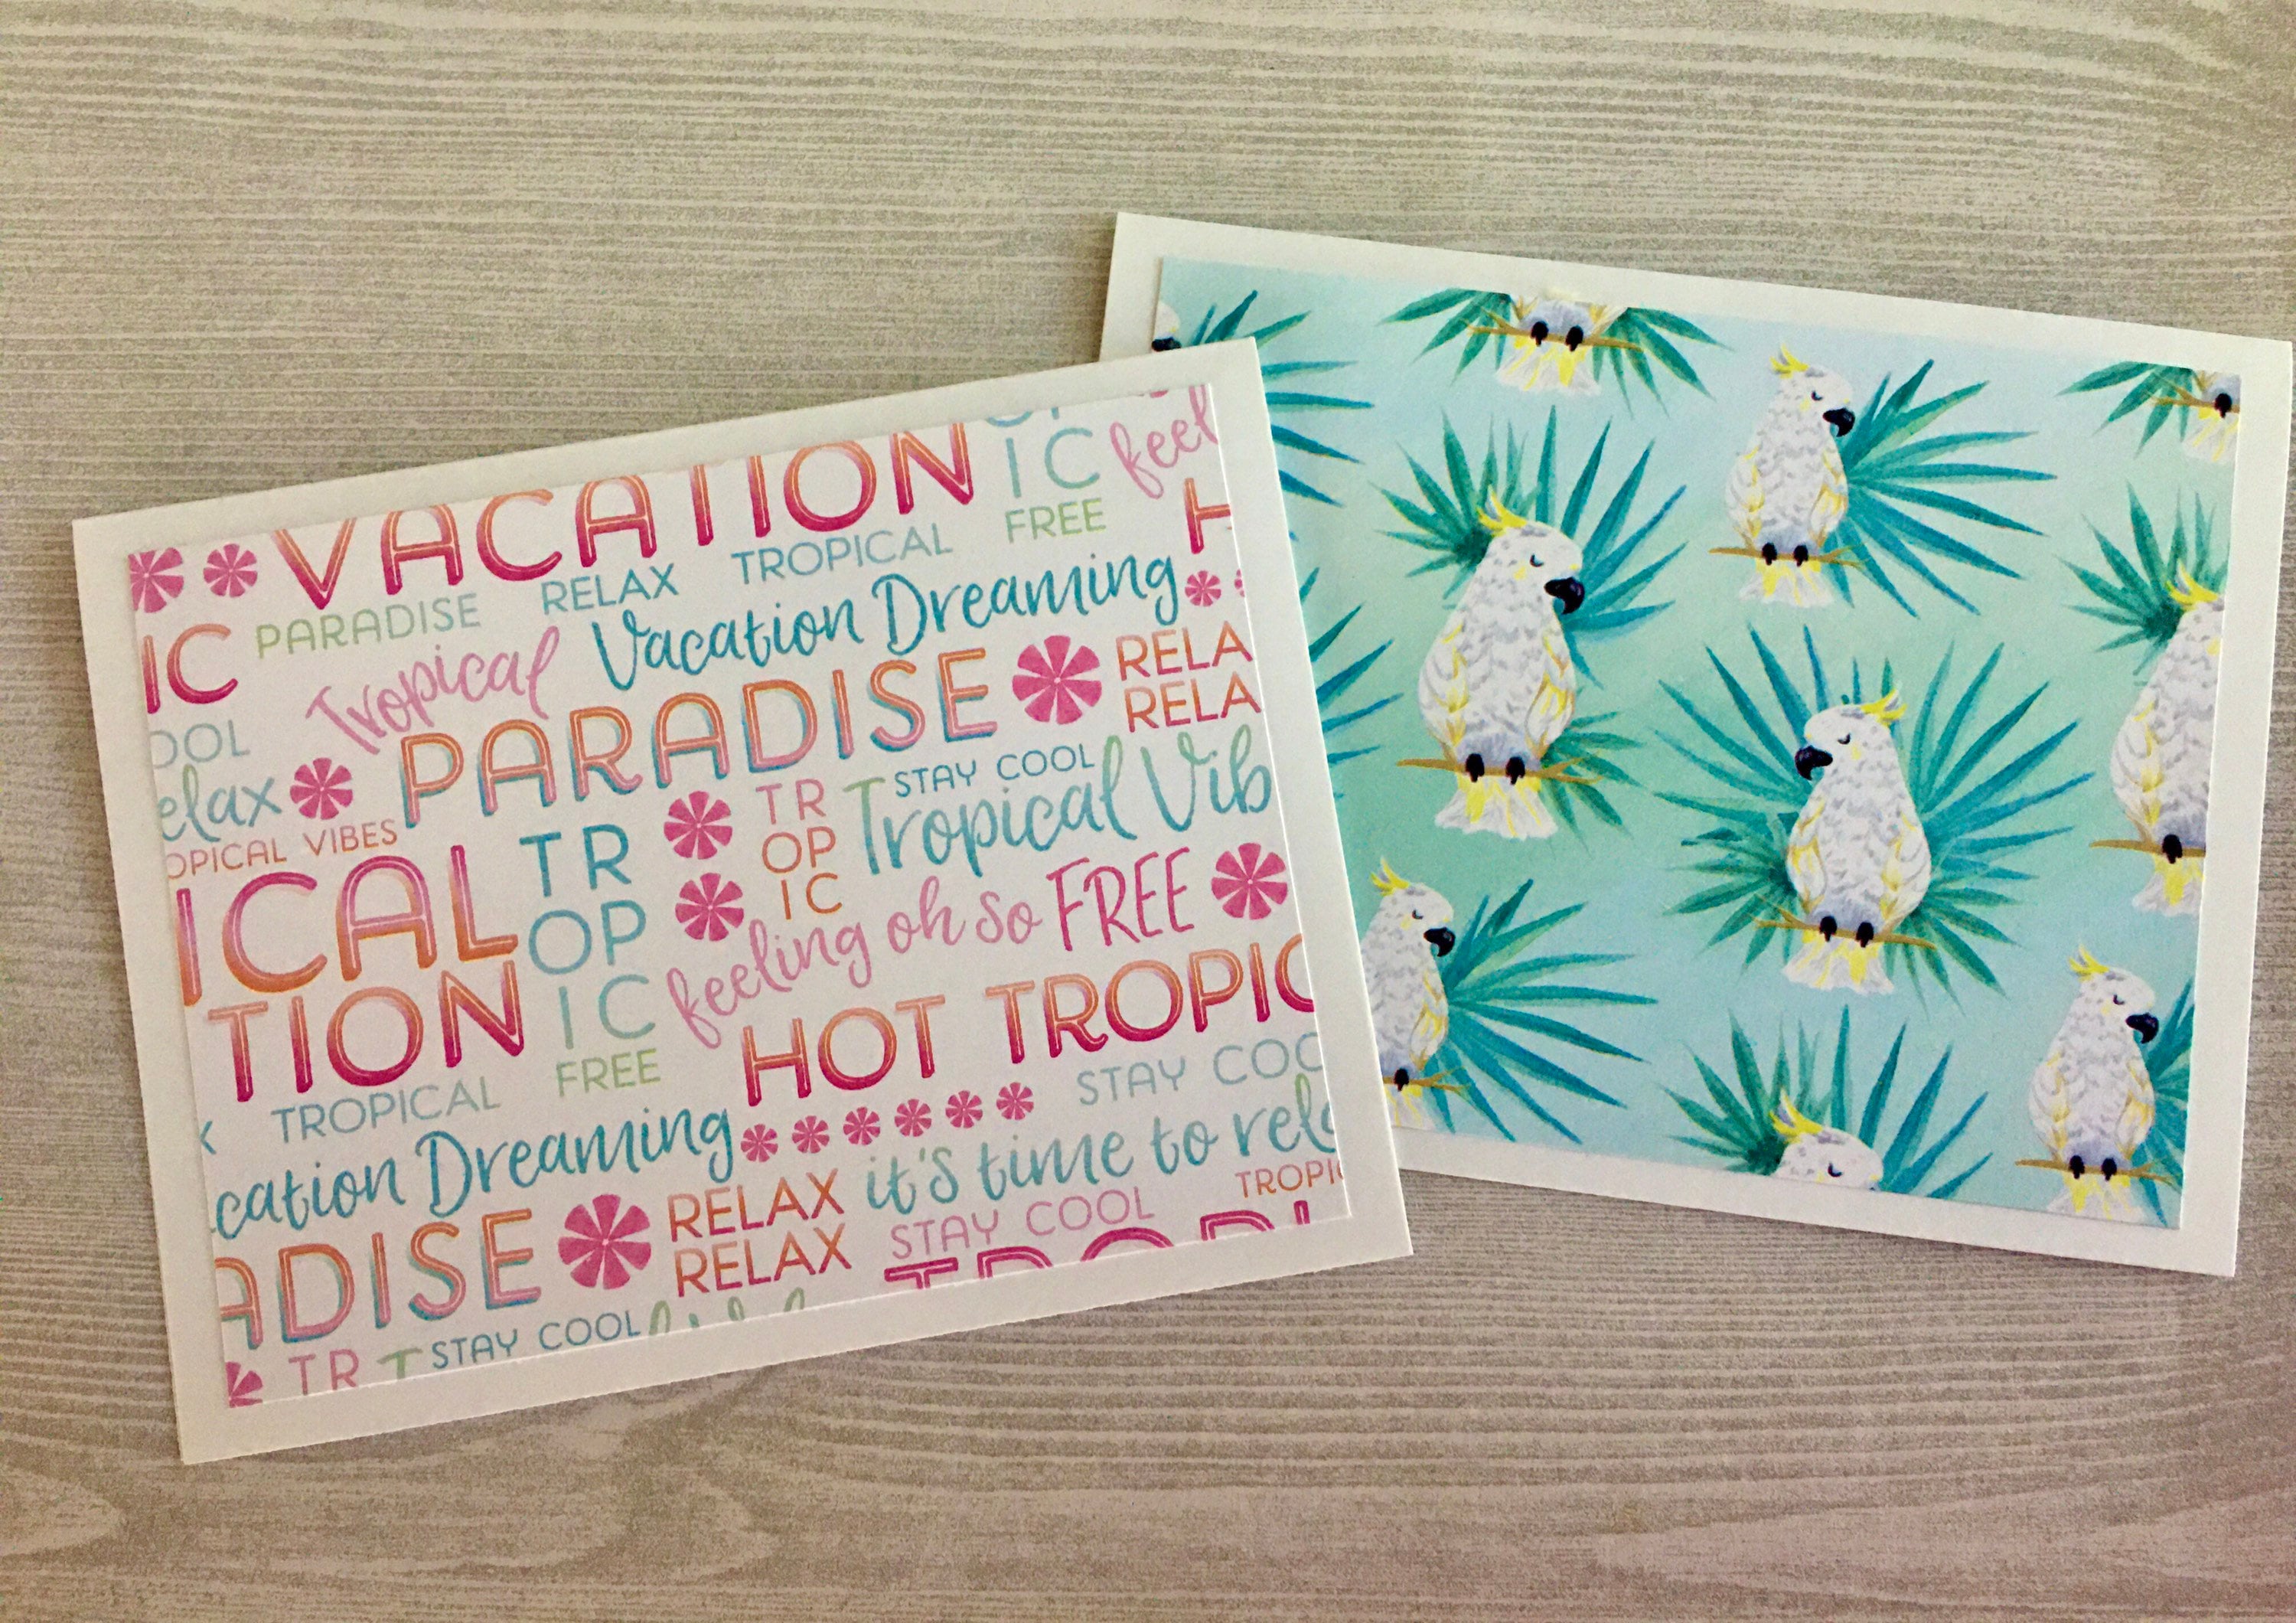 VACATION
IC
feel
FREE
TROPICAL
RELAX
PARADISE
H
IC
Vacation Dreaming
Tropical
RELA
RELA
PARADISE
OOL
elax
STAY COOL
Tropical Vib
TR
OP
IC
OPICAL VIBES
ICAL
TR
OP
IC
FREE
feeling oh so FREE
TION
HOT TROPIC
TROPICAL
STAY COO
cation Dreaming
it's time to rel
RELAX
RELAX
TROPI
STAY COOL
ADISE
STAY COOL
TR
T